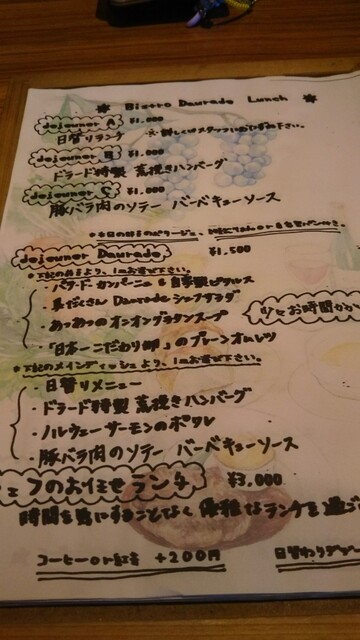 * Bistro Daurade Lunch *
dejeuner A ¥1,000
日替リランチ ※詳しくはスタッフにおたずね下さい。
dejeuner B ¥1,000
ドラード特製 荒挽きハンバーグ
dejeuner C ¥1,000
豚バラ肉のソテー バーベキューソース
※本日の
dejeuner Daurade ¥1,500
※下記の前菜より、1つお選び下さい。
・パテ・ド・カンパーニュ & 自家製ピクルス
・具だくさん Daurade シェフサラダ
・あっつあつのオニオングラタンスープ
少々お時間がか
・「日本一こだわり卵」のプレーンオムレツ
※下記のメインディッシュより、1つお選び下さい。
・日替リメニュー
・ドラード特製 荒挽きハンバーグ
・ノルウェーサーモンのポワレ
・豚バラ肉のソテー バーベキューソース
シェフのお任せランチ ¥3,000
時間を気にすることなく 優雅なランチを過ご
コーヒーor紅茶 +200円
日替わりデザー